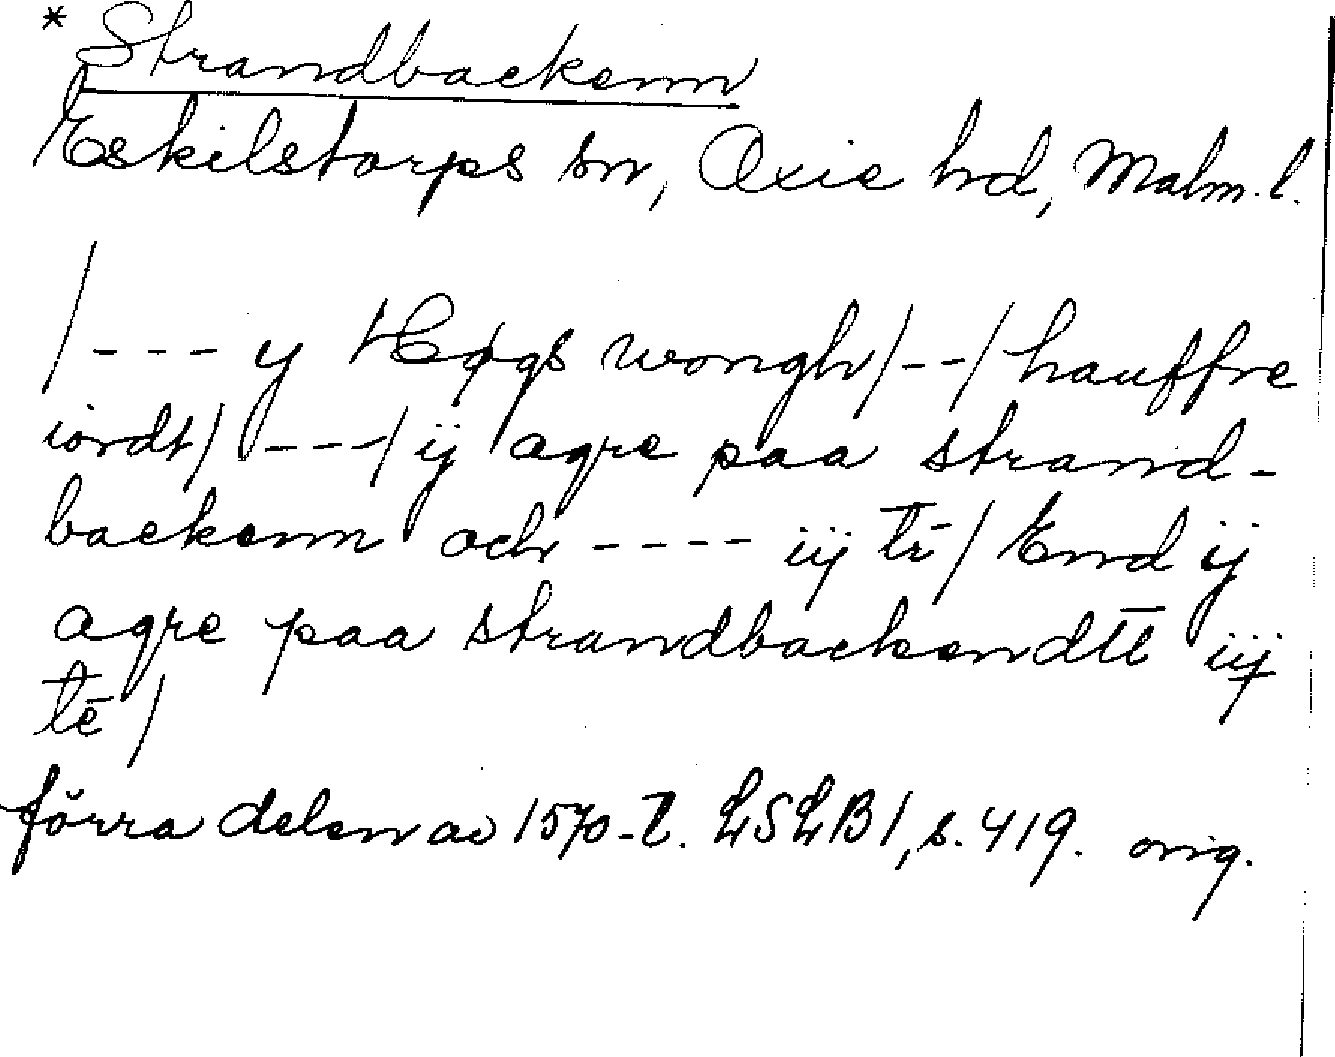 * Strandbackenn
Eskilstorps sn, Oxie hd, Malm. l.
/--- y Høgs wongh/--/hauffre
iordt/ ---/ ij agre paa strand-
backenn och ---- iij tr̄/ End ij
agre paa strandbackendtt̄ iij
tē/
förra delen av 1570-t. LSLB1, s. 419. orig.